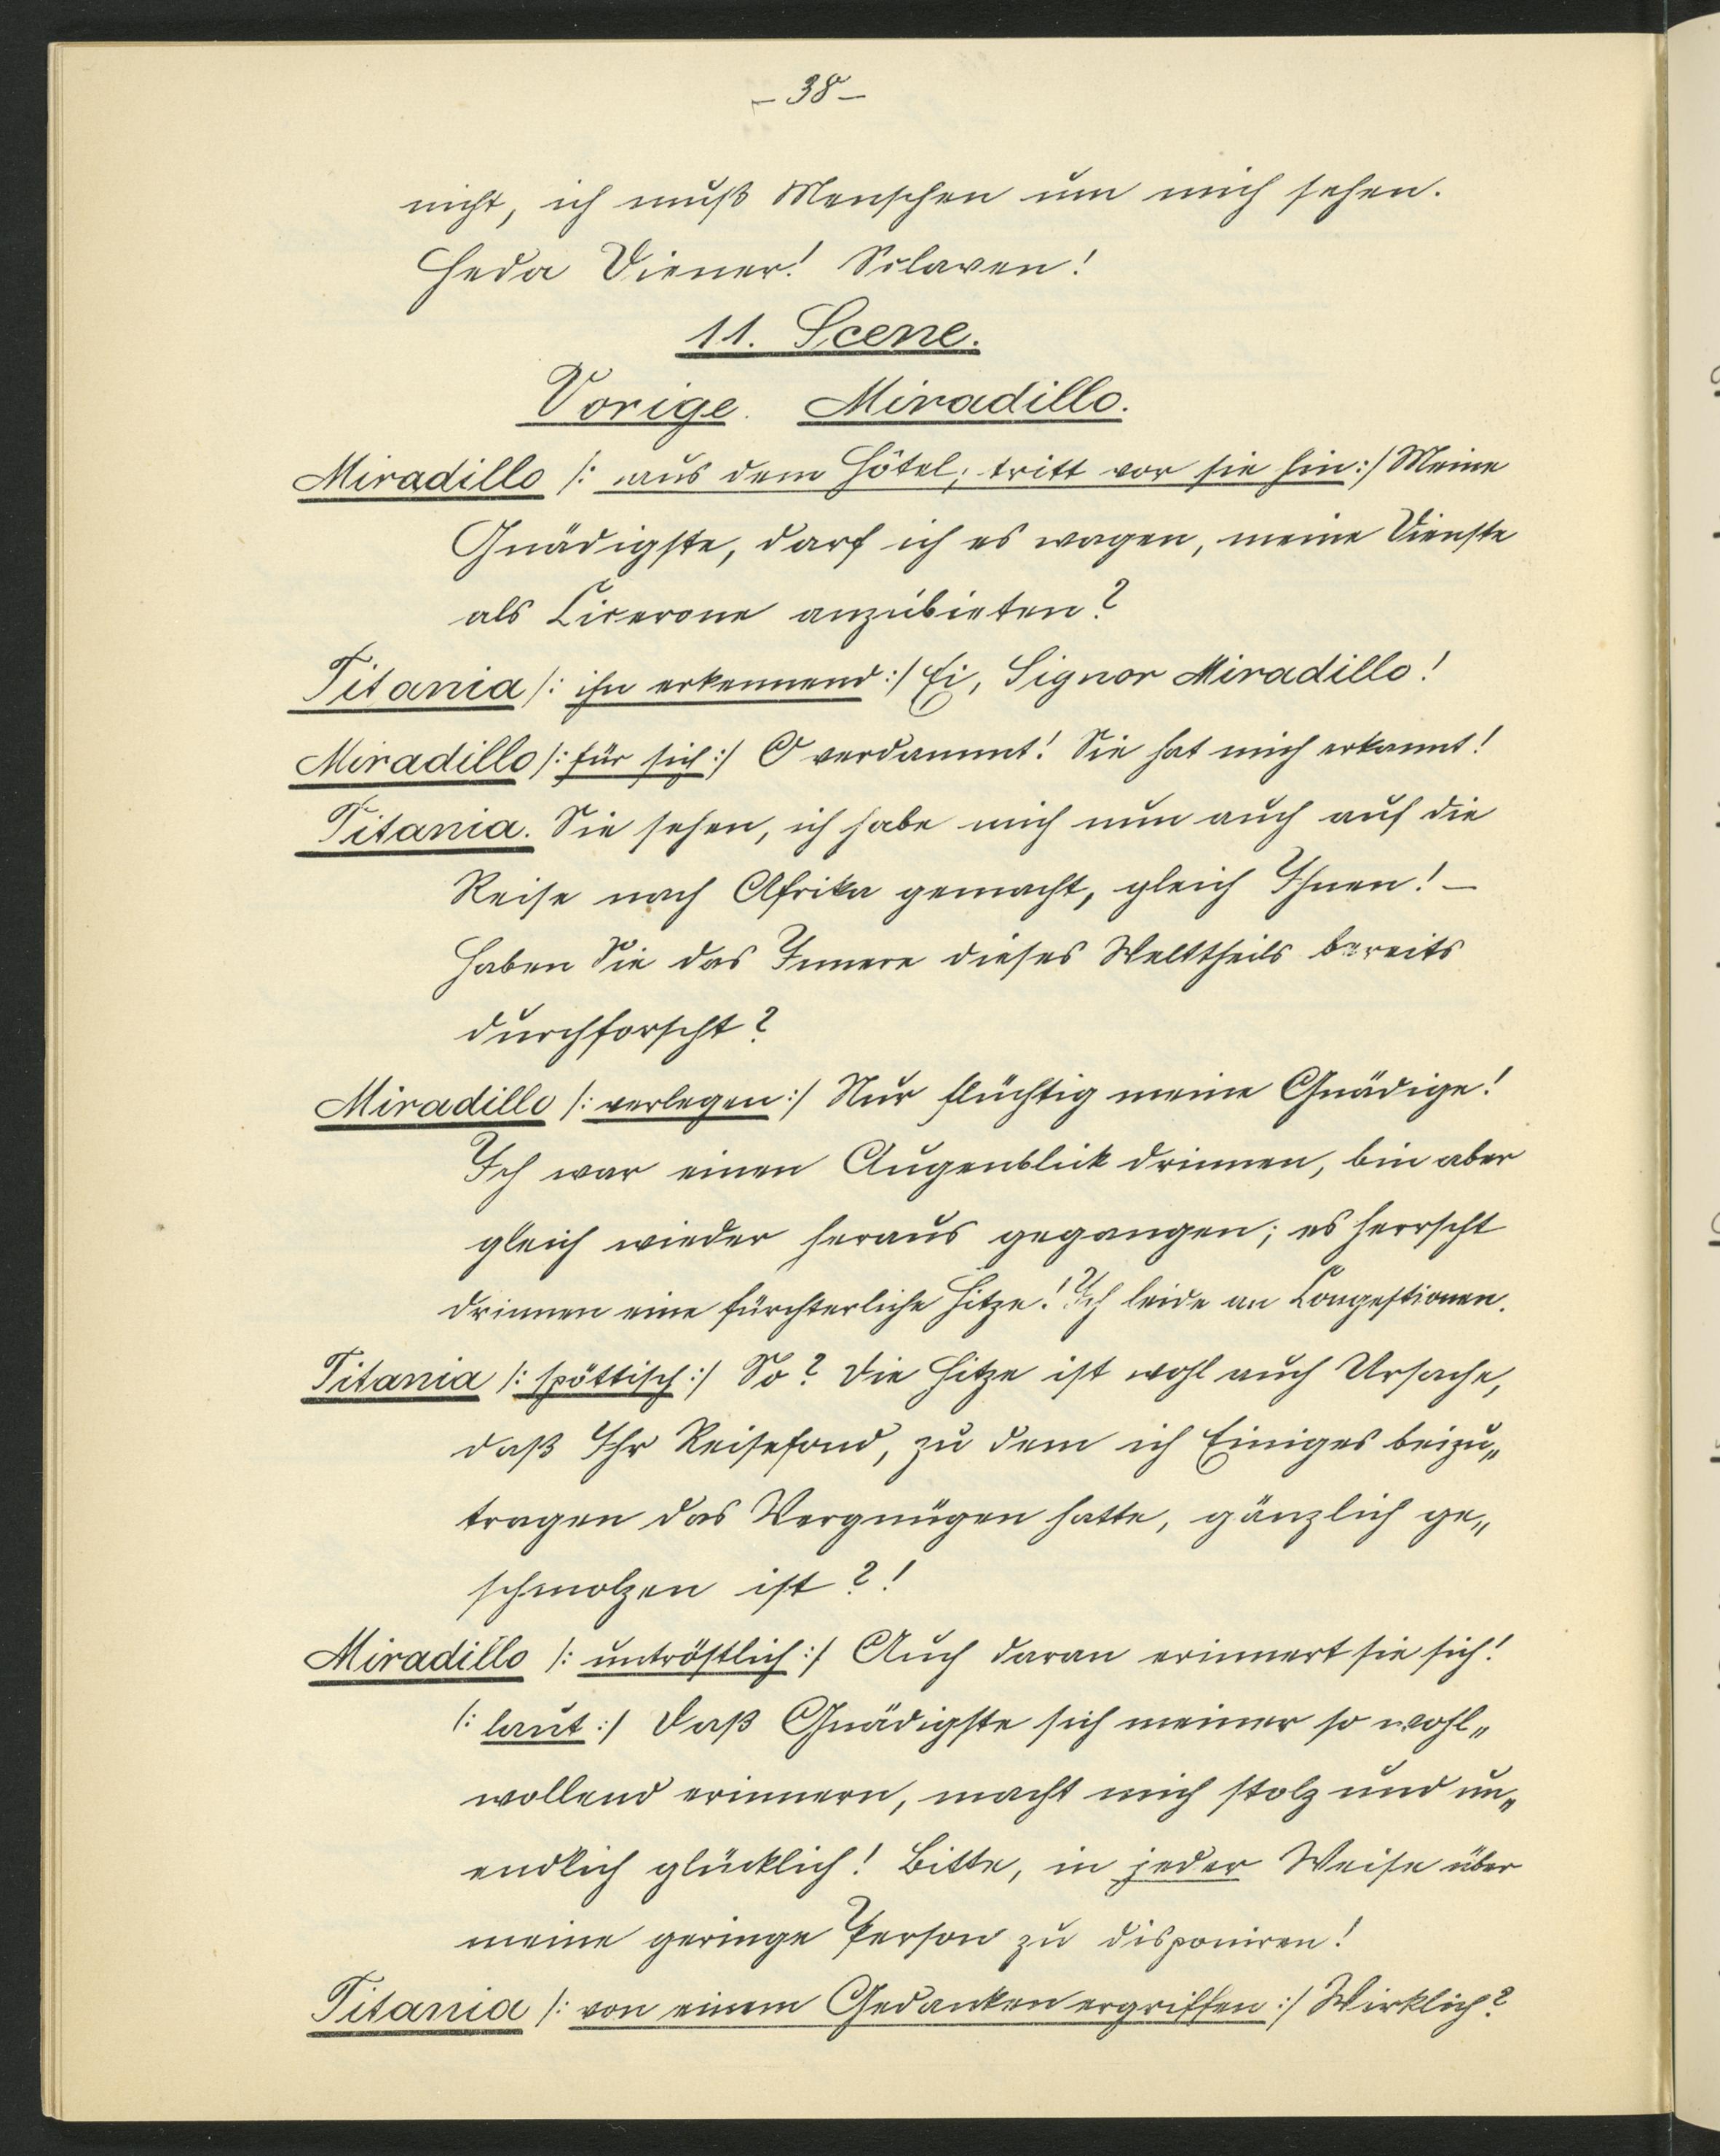 - 38 -
nicht, ich muß Menschen um mich sehen.
Heda Diener! Sclaven!
11. Scene.
Vorige. Miradillo.
Miradillo /: aus dem Hôtel; tritt vor sie hin :/ Meine
Gnädigste, darf ich es wagen, meine Dienste
als Cicerone anzubieten?
Titania /: ihn erkennend :/ Ei, Signor Miradillo!
Miradillo /: für sich :/ O verdammt! Sie hat mich erkannt!
Titania. Sie sehen, ich habe mich nun auch auf die
Reise nach Afrika gemacht, gleich Ihnen! –
Haben Sie das Innere dieses Welttheils bereits
durchforscht?
Miradillo /: verlegen :/ Nur flüchtig meine Gnädige!
Ich war einen Augenblick drinnen, bin aber
gleich wieder heraus gegangen; es herrscht
drinnen eine fürchterliche Hitze! Ich leide an Congestionen.
Titania /: spöttisch :/ So? Die Hitze ist wohl auch Ursache,
daß Ihr Reisefond, zu dem ich Einiges beizu„
tragen das Vergnügen hatte, gänzlich ge„
schmolzen ist?!
Miradillo /: untröstlich :/ Auch daran erinnert sie sich!
/: laut :/ Daß Gnädigste sich meiner so wohl„
wollend erinnern, macht mich stolz und un„
endlich glücklich! Bitte, in jeder Weise über
meine geringe Person zu disponiren!
Titania /: von einem Gedanken ergriffen :/ Wirklich?